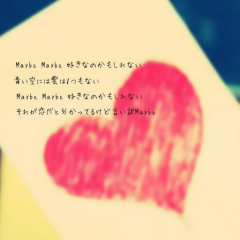 Maybe Maybe 好きなのかもしれない
青い空には雲は1つもない
Maybe Maybe 好きなのかもしれない
それが恋だと分かってるけど言い訳Maybe